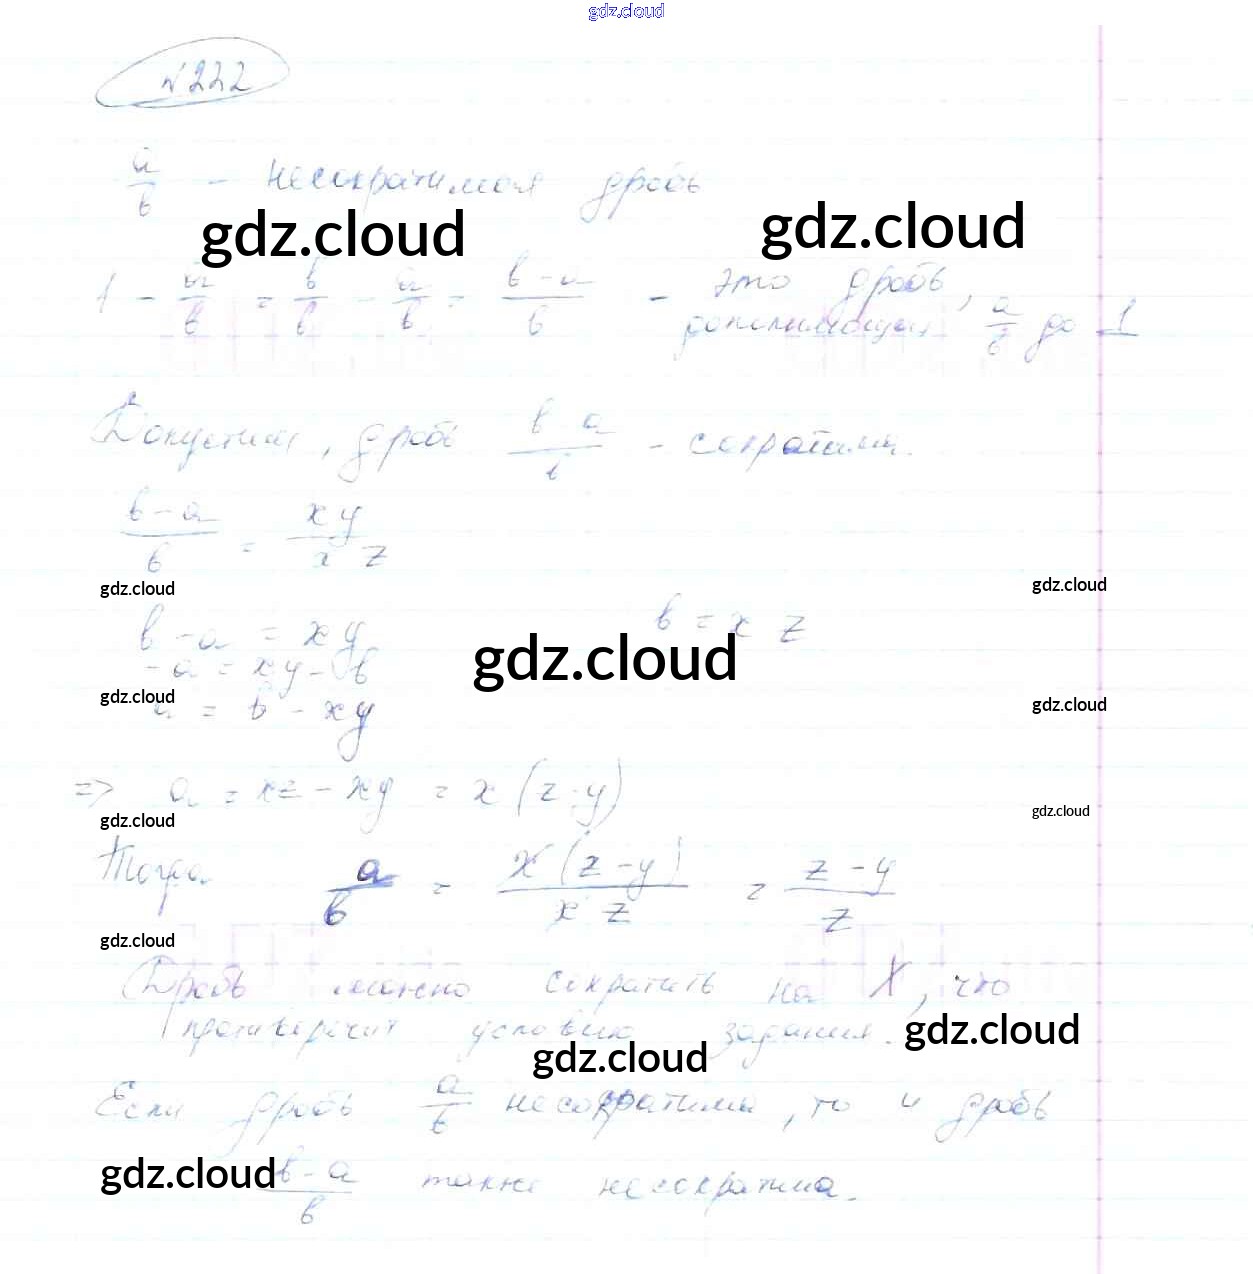 gdz.cloud
№222
a/b - несократимая дробь
gdz.cloud gdz.cloud
1 - a/b = b/b - a/b = b-a/b - это дробь,
дополняющая a/b до 1
Допустим, дробь b-a/b - сократима.
b-a/b = xy/xz
gdz.cloud gdz.cloud
b-a = xy b = xz
-a = xy-b gdz.cloud
gdz.cloud gdz.cloud
a = b-xy
=> a = xz-xy = x(z-y)
gdz.cloud gdz.cloud
Тогда a/b = x(z-y)/xz = z-y/z
gdz.cloud
Дробь можно сократить на X, что
противоречит условию задания.
gdz.cloud gdz.cloud
Если дробь a/b несократима, то и дробь
gdz.cloud b-a/b также несократима.